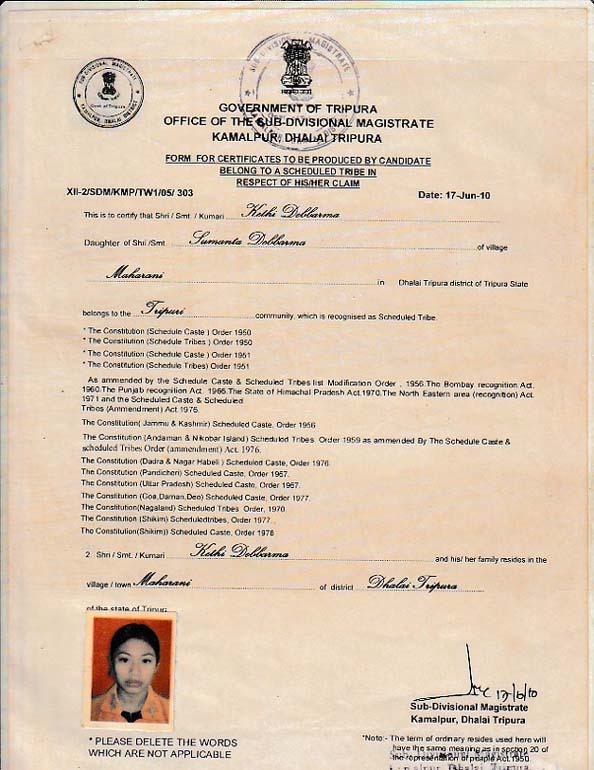 SUB-DIVISIONAL MAGISTRATE
Govt. of Tripura
KAMALPUR, DHALAI DISTRICT
SUB-DIVISIONAL MAGISTRATE
GOVERNMENT OF TRIPURA
OFFICE OF THE SUB-DIVISIONAL MAGISTRATE
KAMALPUR, DHALAI TRIPURA
FORM FOR CERTIFICATES TO BE PRODUCED BY CANDIDATE
BELONG TO A SCHEDULED TRIBE IN
RESPECT OF HIS/HER CLAIM
XII-2/SDM/KMP/TW1/05/ 303 Date: 17-Jun-10
This is to certify that Shri / Smt. / Kumari Kethi Debbarma
Daughter of Shri /Smt Sumanta Debbarma of village
Maharani in Dhalai Tripura district of Tripura State
belongs to the Tripuri community, which is recognised as Scheduled Tribe.
* The Constitution (Schedule Caste ) Order 1950
* The Constitution (Schedule Tribes ) Order 1950
* The Constitution (Schedule Caste ) Order 1951
* The Constitution (Schedule Tribes) Order 1951
As ammended by the Schedule Caste & Scheduled Tribes list Modification Order , 1956.The Bombay recognition Act.
1960.The Punjab recognition Act. 1966.The State of Himachal Pradesh Act.1970.The North Eastern area (recognition) Act.
1971 and the Scheduled Caste & Scheduled
Tribes (Ammendment) Act.1976.
The Constitution( Jammu & Kashmir) Scheduled Caste, Order 1956
The Constitution (Andaman & Nikobar Island) Scheduled Tribes Order 1959 as ammended By The Schedule Caste &
scheduled Tribes Order (ammendment) Act. 1976.
The Constitution (Dadra & Nagar Habeli ) Scheduled Caste, Order 1976
The Constitution (Pandicheri) Scheduled Caste, Order 1967.
The Constitution (Uttar Pradesh) Scheduled Caste, Order 1967.
The Constitution (Goa,Daman,Deo) Scheduled Caste, Order 1977.
The Constitution(Nagaland) Scheduled Tribes Order, 1970.
The Constitution (Shikim) Scheduledtribes, Order 1977.
The Constitution(Shikim)) Scheduled Caste, Order 1978
2. Shri / Smt. / Kumari Kethi Debbarma and his/ her family resides in the
village / town Maharani of district Dhalai Tripura
of the state of Tripura
17/6/10
Sub-Divisional Magistrate
Kamalpur, Dhalai Tripura
* PLEASE DELETE THE WORDS
WHICH ARE NOT APPLICABLE
*Note:- The term of ordinary resides used here will
have the same meaning as in section 20 of
the representation of people Act.1950.
Sub Divisional Magistrate
Dhalai Tripura